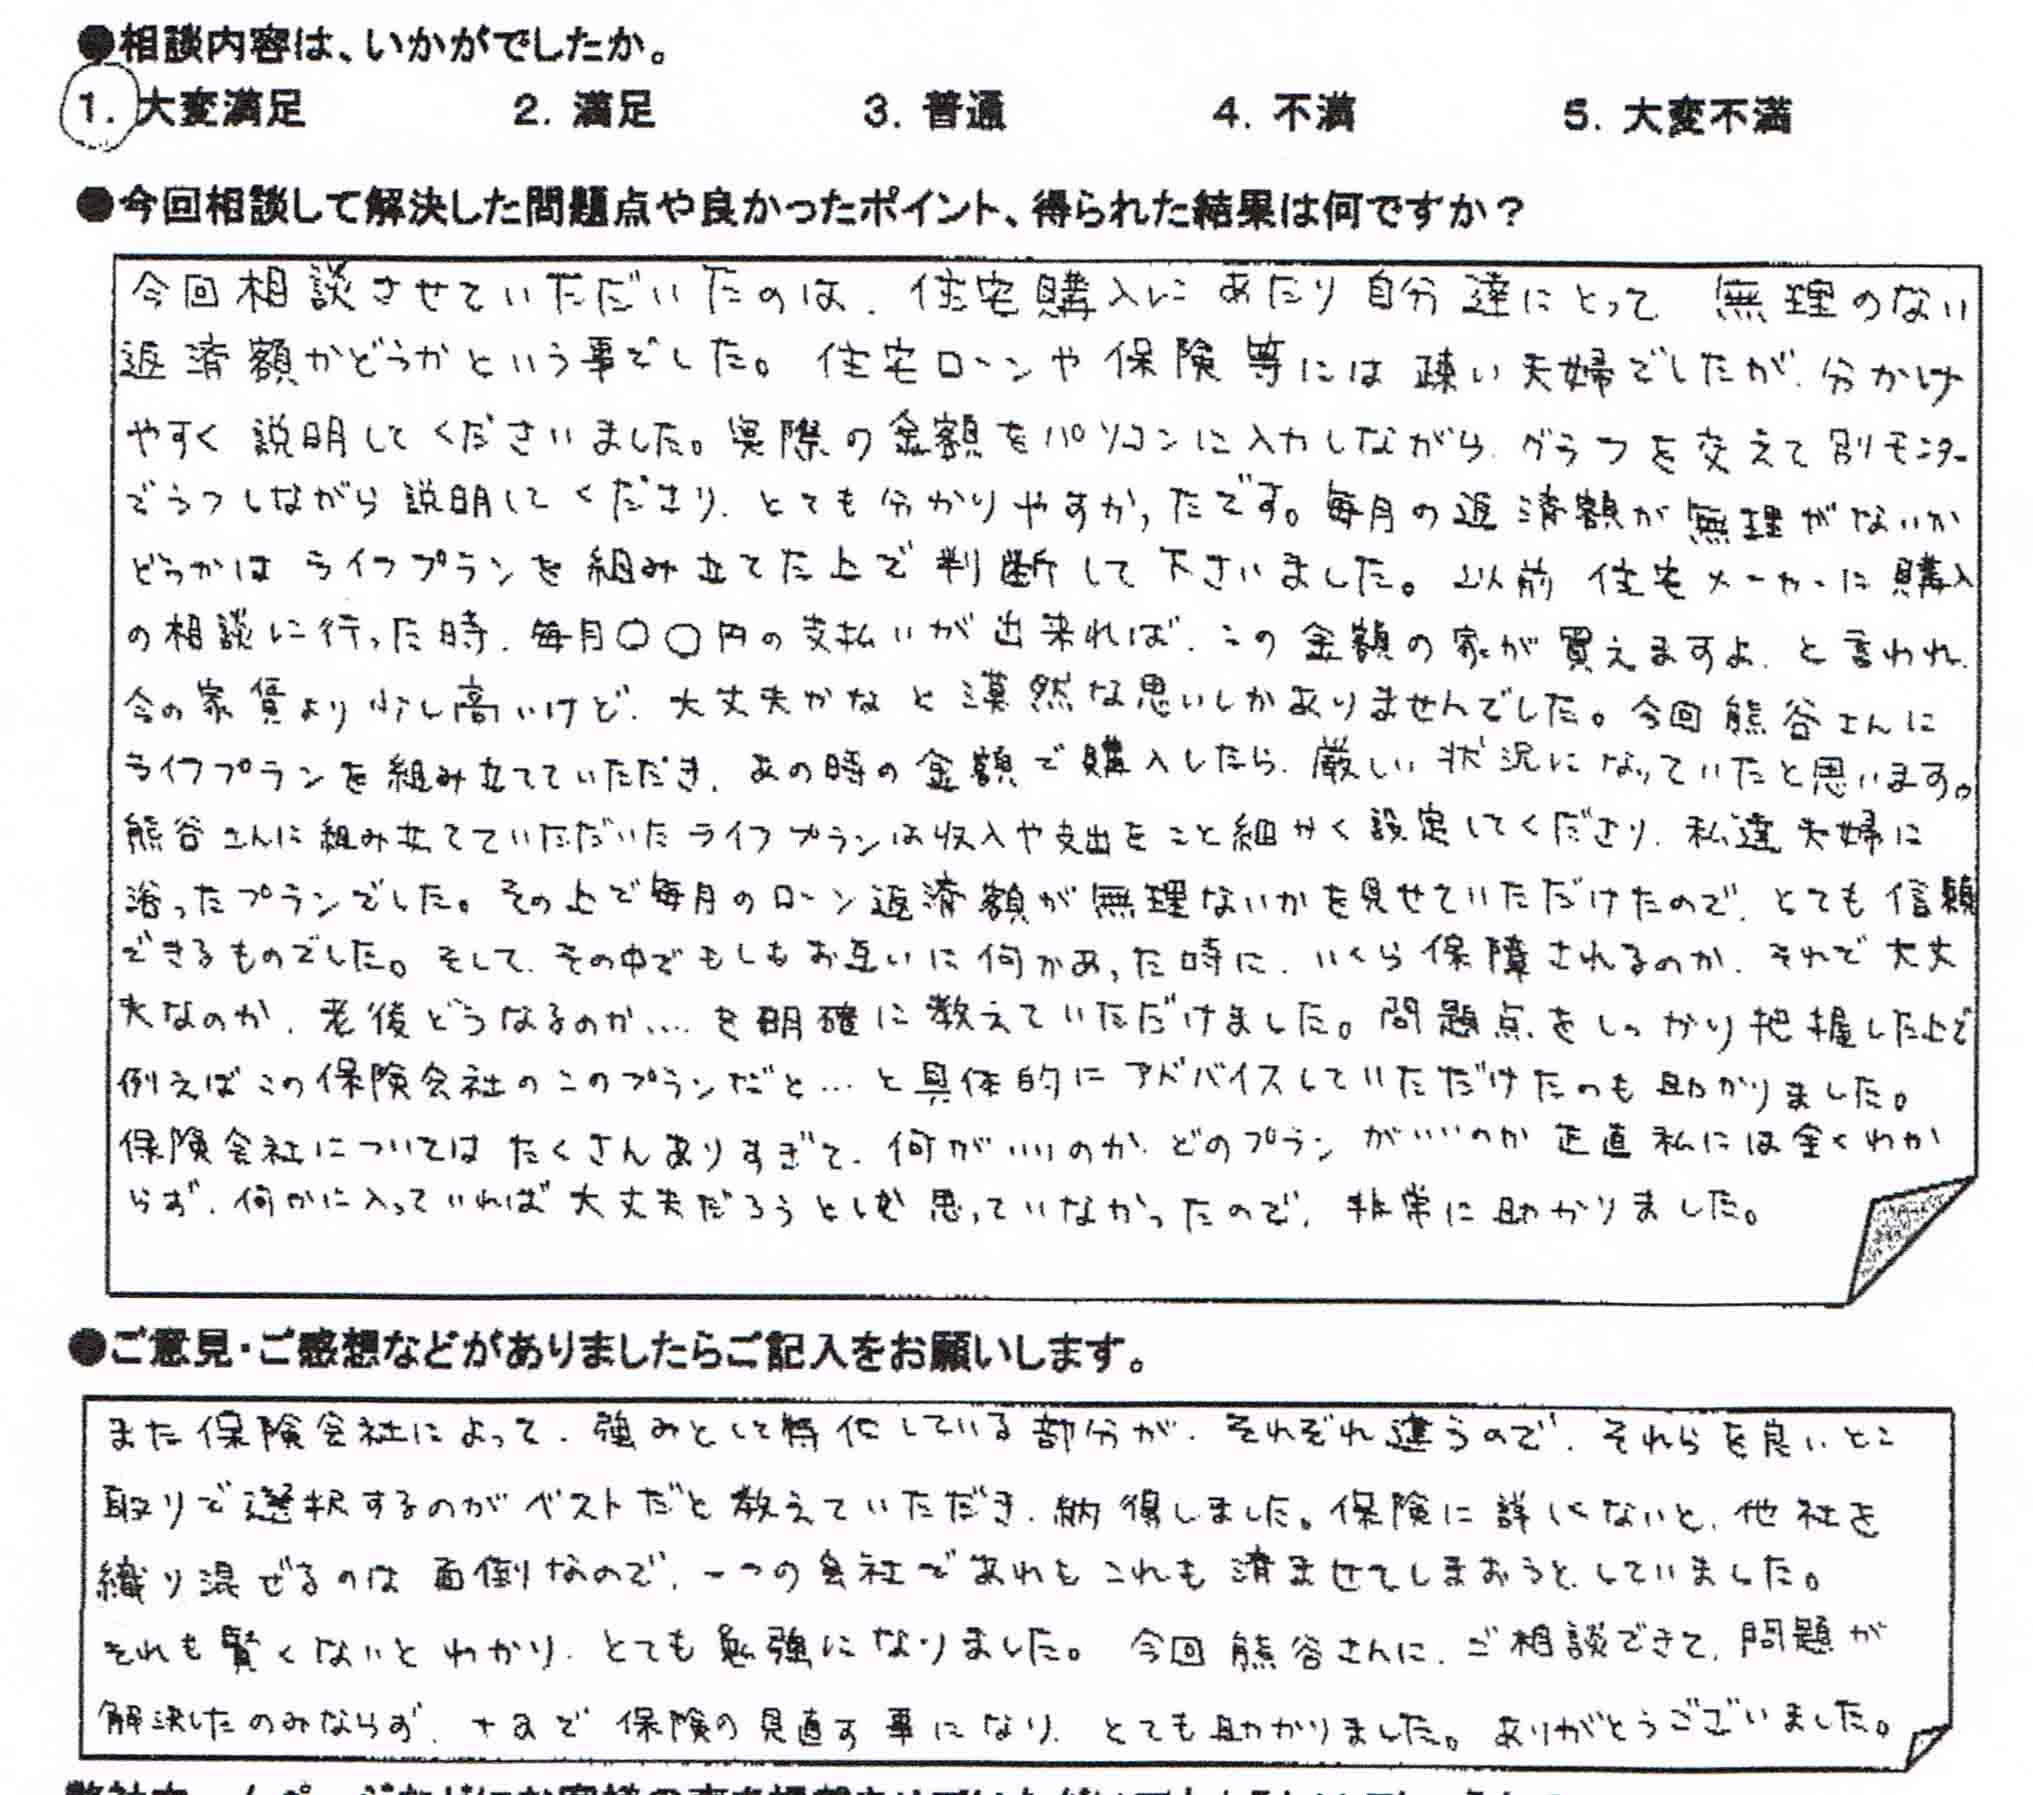 ●相談内容は、いかがでしたか。
1. 大変満足 2. 満足 3. 普通 4. 不満 5. 大変不満
●今回相談して解決した問題点や良かったポイント、得られた結果は何ですか？
今回相談させていただいたのは、住宅購入にあたり自分達にとって無理のない
返済額かどうかという事でした。住宅ローンや保険等には疎い夫婦でしたが、分かり
やすく説明してくださいました。実際の金額をパソコンに入力しながら、グラフを交えて別モニター
でうつしながら説明してくださり、とても分かりやすかったです。毎月の返済額が無理がないか
どうかはライフプランを組み立てた上で判断して下さいました。以前住宅メーカーに購入
の相談に行った時、毎月〇〇円の支払いが出来れば、この金額の家が買えますよ、と言われ、
今の家賃より少し高いけど、大丈夫かなと漠然な思いしかありませんでした。今回熊谷さんに
ライフプランを組み立てていただき、あの時の金額で購入したら、厳しい状況になっていたと思います。
熊谷さんに組み立てていただいたライフプランは収入や支出をこと細かく設定してくださり、私達夫婦に
沿ったプランでした。その上で毎月のローン返済額が無理ないかを見せていただけたので、とても信頼
できるものでした。そして、その中でもしもお互いに何かあった時に、いくら保障されるのか、それで大丈
夫なのか、老後どうなるのか…を明確に教えていただけました。問題点をしっかり把握した上で
例えばこの保険会社のこのプランだと…と具体的にアドバイスしていただけたのも助かりました。
保険会社についてはたくさんありすぎて、何がいいのか、どのプランがいいのか正直私には全くわか
らず、何かに入っていれば大丈夫だろうとしか思っていなかったので、非常に助かりました。
●ご意見・ご感想などがありましたらご記入をお願いします。
また保険会社によって、強みとして特化している部分が、それぞれ違うので、それらを良いとこ
取りで選択するのがベストだと教えていただき、納得しました。保険に詳しくないと、他社を
織り混ぜるのは面倒なので、一つの会社であれもこれも済ませてしまおうと、していました。
それも賢くないとわかり、とても勉強になりました。今回熊谷さんに、ご相談できて、問題が
解決したのみならず、+αで保険の見直す事になり、とても助かりました。ありがとうございました。